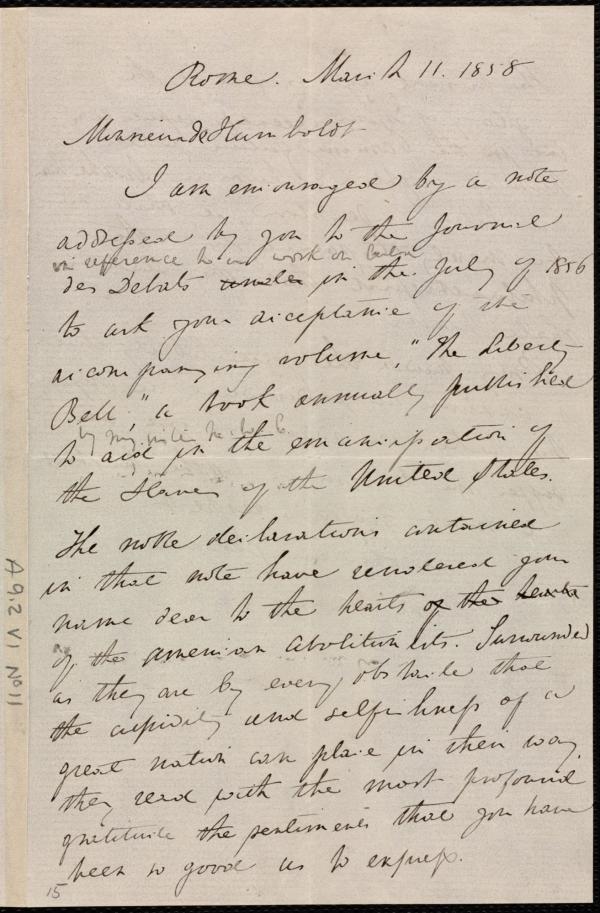 Rome. March 11. 1858
Monsieur de Humboldt
I am encouraged by a note
addressed by you to the Journal
in reference to a work on Cuba
des Debats under in the July of 1856
to ask your acceptance of the
accompanying volume, "The Liberty
Bell," a book annually published
by my sister Mrs.
to aid in the emancipation of
the Slaves of the United States.
The noble declarations contained
in that note have rendered your
name dear to the hearts of the hearts
of the American Abolitionists. Surrounded
as they are by every obstacle that
the cupidity and selfishness of a
great nation can place in their way,
they read with the most profound
gratitude the sentiments that you have
been so good as to express.
15
A 9.2 V1 No 11